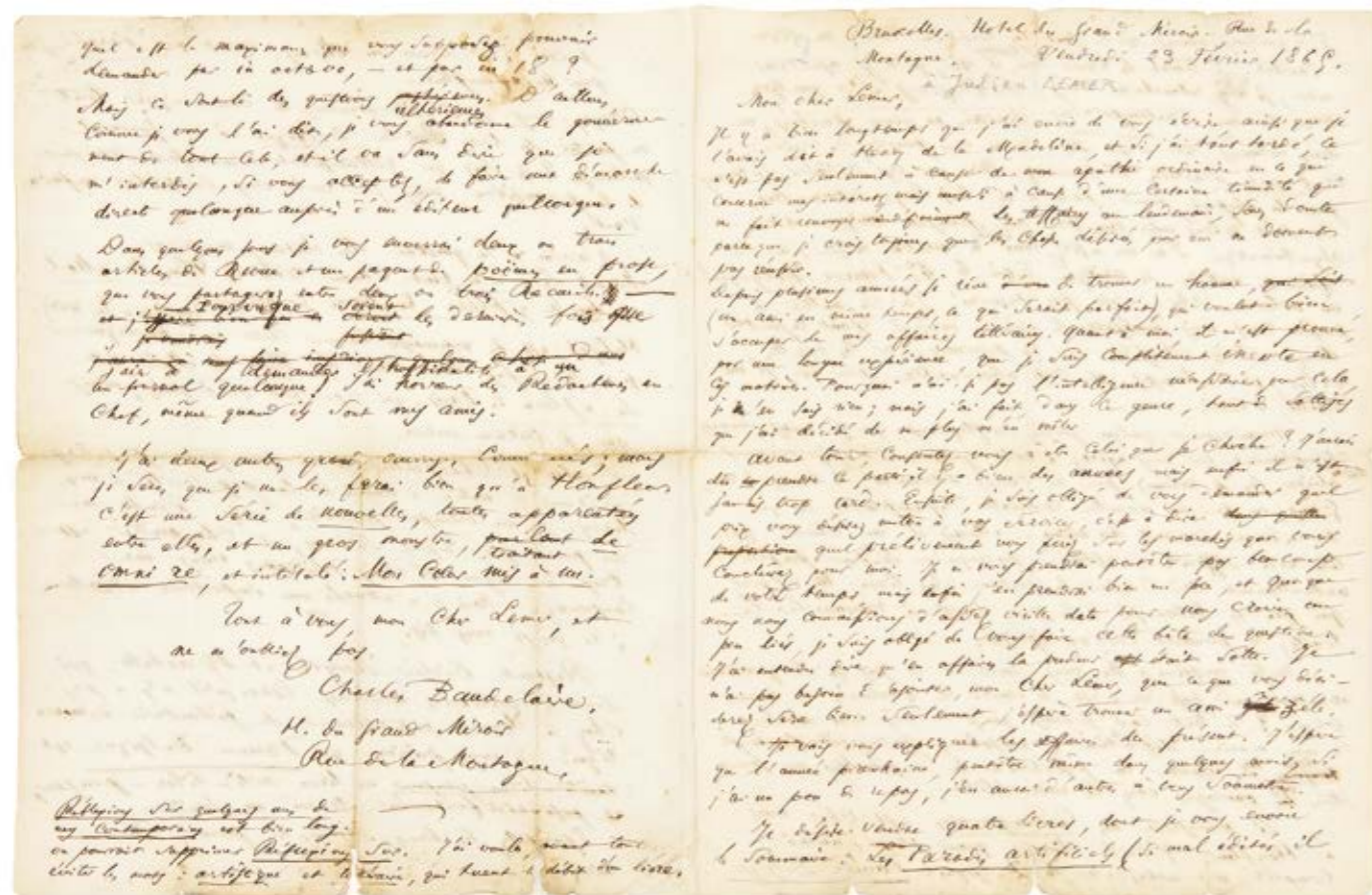 quel est le maximum que vous supposez pouvoir
demander par in octavo, — et par in 18 ?
Mais ce sont là des questions ultérieures. D'ailleurs,
comme je vous l'ai dit, je vous abandonne le gouverne-
ment de tout cela, et il va sans dire que je
m'interdis, si vous acceptez, de faire une démarche
directe quelconque auprès d'un éditeur quelconque.
Dans quelques jours je vous enverrai deux ou trois
articles de Revue et un paquet de poëmes en prose,
que vous partagerez entre deux ou trois Recueils. —
et j'espère bien que ce seront les dernières fois que
demander l'hospitalité à un
un journal quelconque. J'ai horreur des Rédacteurs en
Chef, même quand ils sont mes amis.
J'ai deux autres grands ouvrages commencés ; mais
je sens que je ne les ferai bien qu'à Honfleur
c'est une série de nouvelles, toutes apparentées
entre elles, et un gros monstre, traitant de
omni re, et intitulé : Mon Cœur mis à nu.
Tout à vous, mon Cher Lemer, et
ne m'oubliez pas.
Charles Baudelaire.
H. du Grand Miroir
Rue de la Montagne.
Réflexions sur quelques uns de
mes contemporains est bien long.
on pourrait supprimer Réflexions sur. J'ai voulu, avant tout
éviter les mots : artistique et littéraire, qui tuent le débit d'un livre.
Bruxelles. Hotel du Grand Miroir. Rue de la
Montagne. Vendredi 23 Février 1865.
à Julien LEMER
Mon cher Lemer,
Il y a bien longtemps que j'ai envie de vous écrire ainsi que je
l'avais dit à Henry de la Madelène, et si j'ai tant tardé, ce
n'est pas seulement à cause de mon apathie ordinaire en ce qui
concerne mes intérêts mais aussi à cause d'une certaine timidité qui
me fait renvoyer indéfiniment les affaires au lendemain, sans doute
parce que je crois toujours que les choses désirées par moi ne doivent
pas réussir.
Depuis plusieurs années je rêve de trouver un homme,
(un ami en même temps, ce qui serait parfait) qui voulût bien
s'occuper de mes affaires littéraires. Quant à moi, il m'est prouvé,
par une longue expérience, que je suis complètement inepte en
ces matières. Pourquoi n'ai-je pas l'intelligence nécessaire pour cela,
je n'en sais rien ; mais j'ai fait dans ce genre, tant de sottises
que j'ai décidé de ne plus m'en mêler
avant tout, consentez vous à être celui que je cherche ? J'aurais
dû prendre ce parti il y a bien des années, mais enfin il n'est
jamais trop tard. Ensuite, je suis obligé de vous demander quel
prix vous désirez mettre à vos services, c'est à dire
quel prélèvement vous ferez sur les marchés que vous
conclurez pour moi. Je ne vous prendrai peutêtre pas beaucoup
de votre temps mais enfin j'en prendrai bien un peu, et quoique
nous nous connaissions d'assez vieille date pour nous croire un
peu liés, je suis obligé de vous faire cette bête de question.
J'ai entendu dire qu'en affaires la pudeur était sotte. Je
n'ai pas besoin d'ajouter, mon Cher Lemer, que ce que vous déci-
derez sera bien. Seulement, j'espère trouver un ami zélé.
Je vais vous expliquer les affaires du présent. J'espère
que l'année prochaine, peutêtre même dans quelques mois, si
j'ai un peu de repos, j'en aurai d'autres à vous soumettre.
Je désire vendre quatre livres, dont je vous envoie
le sommaire : Les Paradis artificiels (si mal édités, il